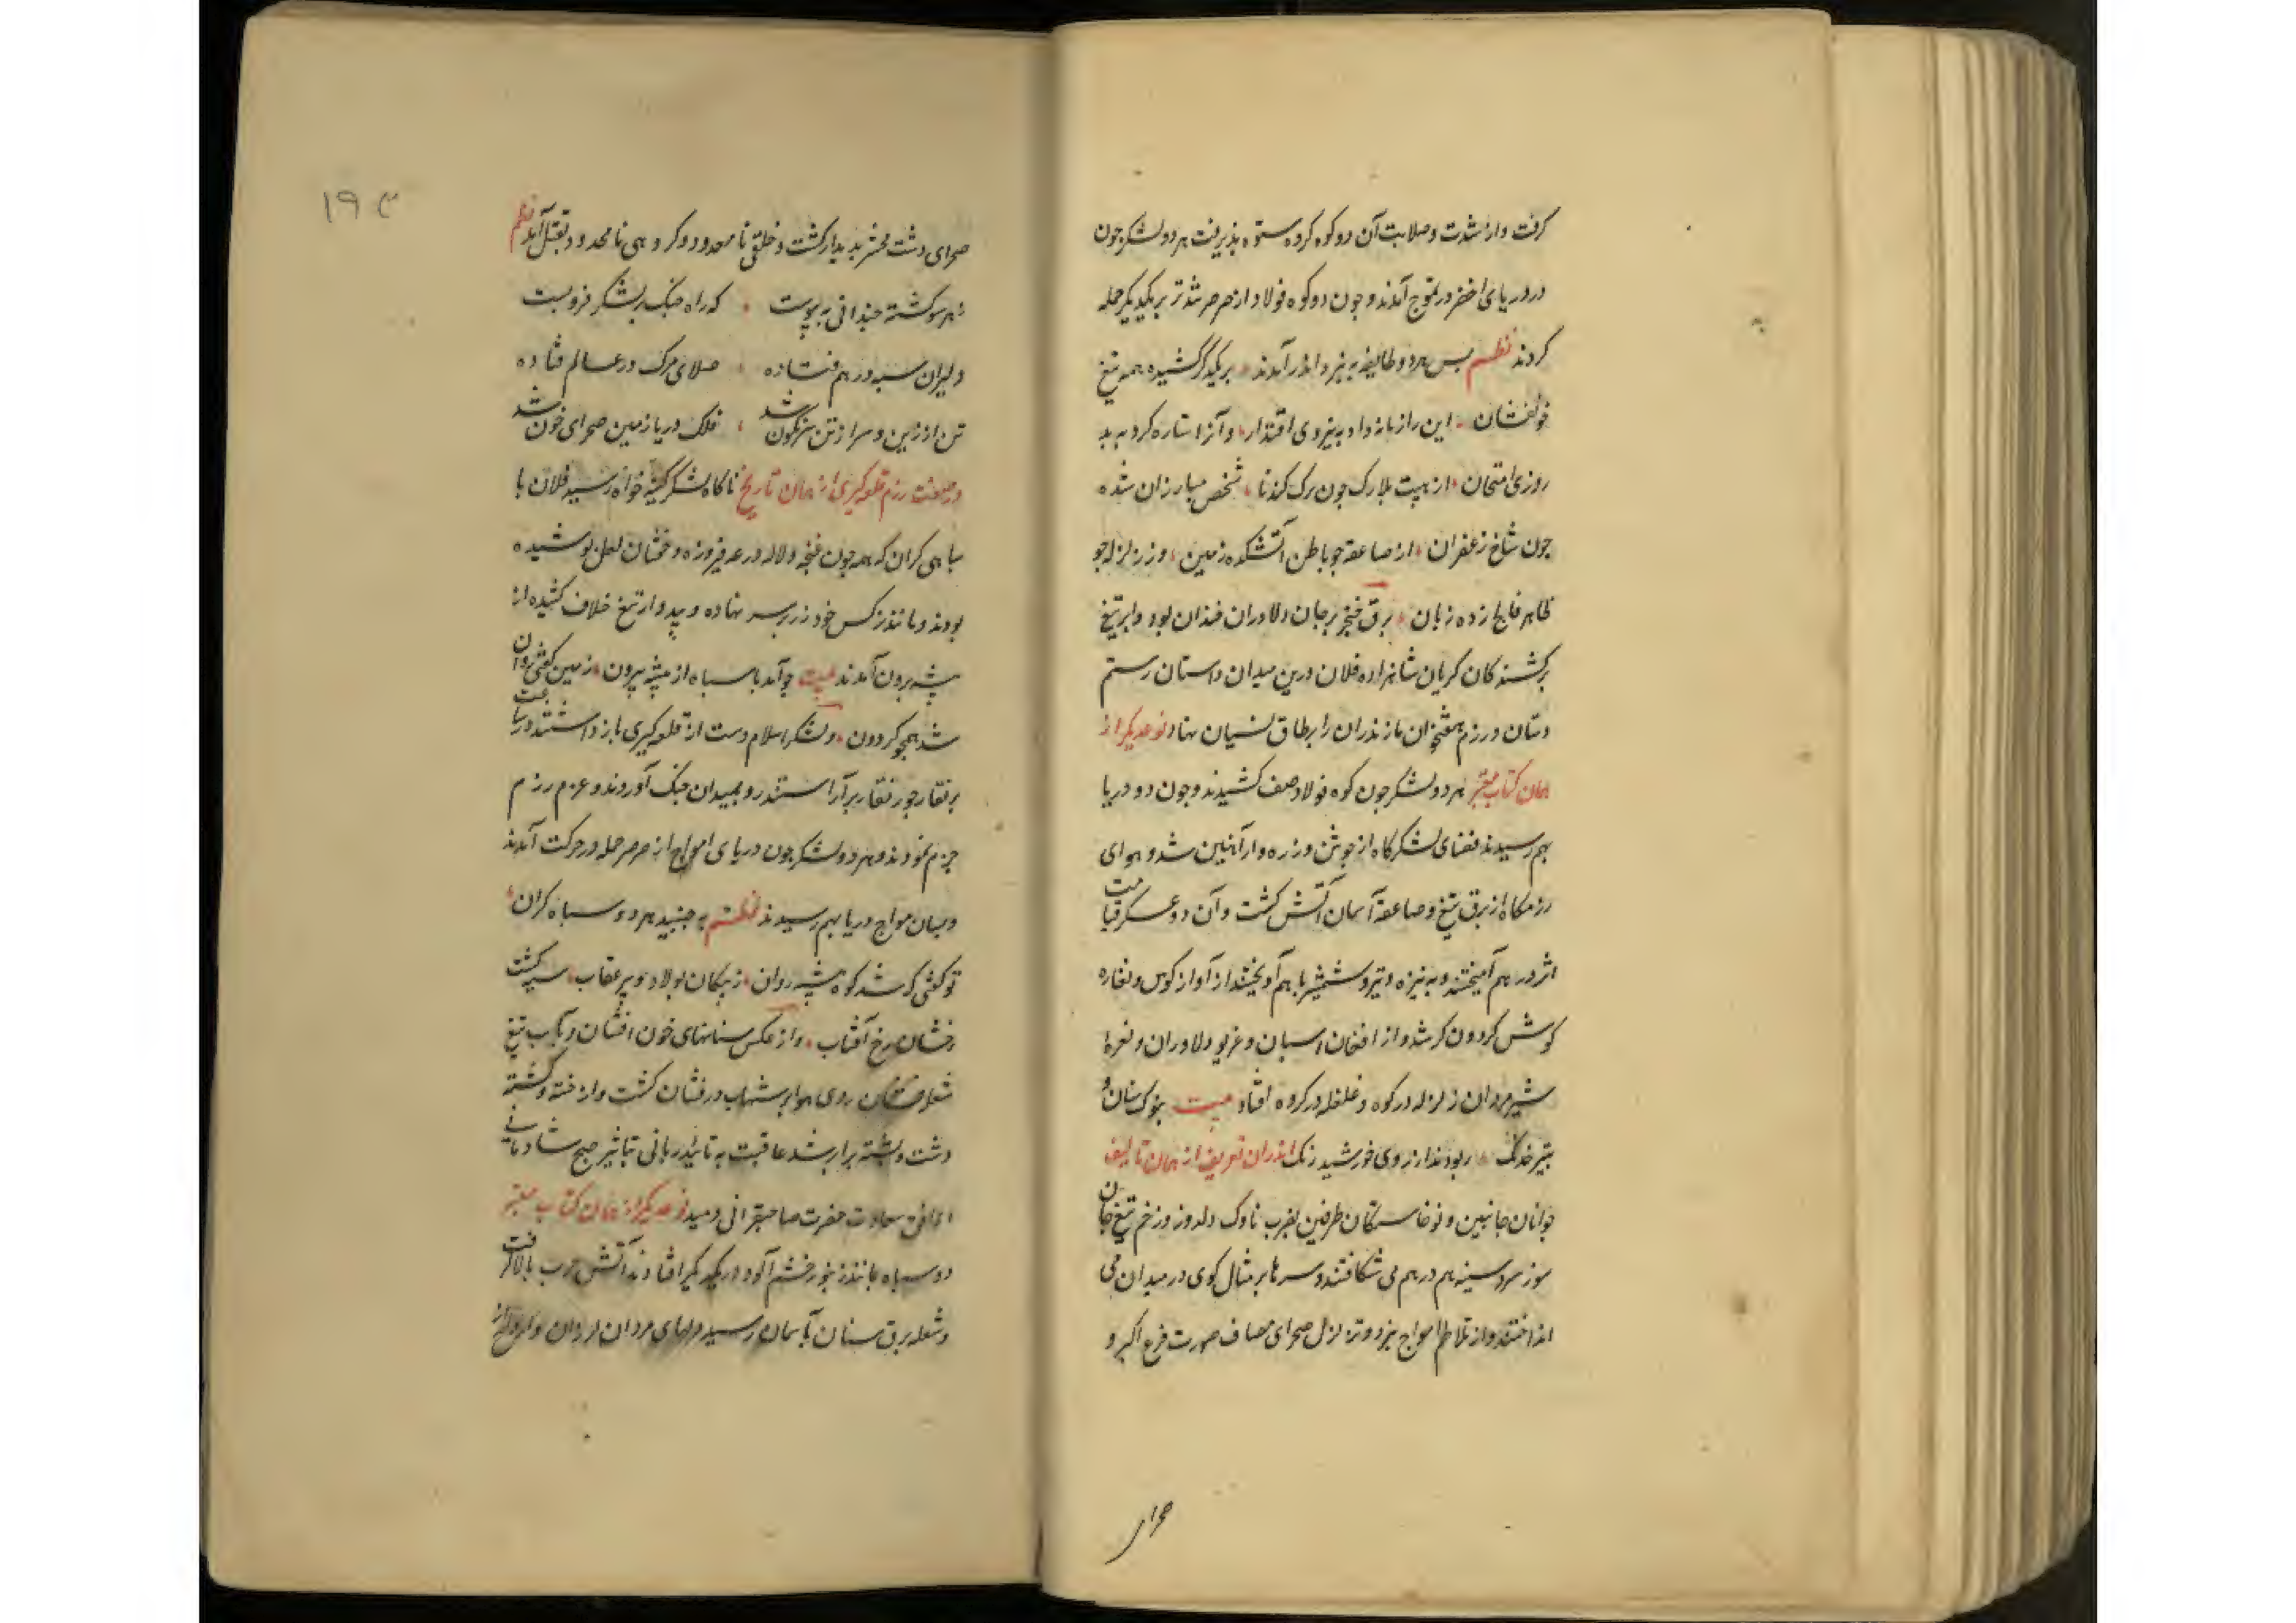 کرفت و از شدت و صلابت آن دو کوه کروه ستوه پذیرفت هر دو لشکر چون
دو دریای اخضر در تموج آمدند و چون دو کوه فولاد از صرصر شدتر بر یکدیکر حمله
کردند نظم پس هر دو طایفه به نبرد اندر آمدند بر یکدکر کشیده همه تیغ
خونفشان این را زمانه داد به نیروی اقتدار و آنرا ستاره کرد به بد
روزی امتحان از هیبت بلارک چون برک کندنا شخص مبارزان شده
چون شاخ زعفران از صاعقه چو باطن آتشکده زمین و ز زلزله چو
ظاهر فالج زده زبان برق خنجر بر جان دلاوران خندان بود و ابر تیغ
بر کشته کان کریان شاهزاده فلان درین میدان داستان رستم
دستان و رزم هفتخوان مازندران را بر طاق نسیان نهاد نوعدیکر از
همان کتاب معتبر هر دو لشکر چون کوه فولاد صف کشیدند و چون دو دریا
بهم رسیدند فضای لشکرکاه از جوشن و زره وار آهنین شد و هوای
رزمکاه از برق تیغ و صاعقه آسمان آتش کشت و آن دو عسکر قیامت
اثر در هم آمیختند و به نیزه و تیر و شمشیر با هم آویختند از آواز کوس و نغاره
کوش کردون کر شد و از افغان اسبان و غریو دلاوران و نعرهٔ
شیر مردان زلزله در کوه و غلغله در کروه افتاد بیت بنوک سنان و
بتیر خدنک ربودند از روی خورشید رنک اندران تعریف از همان تالیف
جوانان جانبین و نوخاستکان طرفین بضرب ناوک دلدوز و زخم تیغ جان
سوز سر و سینه هم در هم می شکافتند و سرها بر مثال کوی در میدان می
انداختند و از تلاطم امواج نبرد و تزلزل صحرای مصاف صورت فزع اکبر و
صحرای
۱۹۳
صحرای دشت محشر پدیدار کشت و خلقی نامعدود و کروهی نامحدود بقتل آمد نظم
ز هر سو کشته چندانی به پیوست که راه جنک بر لشکر فرو بست
دلیران سپه در هم فتاده صلای مرک در عالم فتاده
تن از زین و سر از تن سرنکون شد فلک دریا زمین صحرای خون شد
در صفت رزم قلعه کیری از همان تاریخ ناکاه لشکر کینه خواه رسید فلان با
سپاهی کران که همه چون غنچه و لاله در عد فیروزه و خفتان لعل پوشیده
بودند و مانند نرکس خود زر بر سر نهاده و بیدوار تیغ خلاف کشیده از
بیشه برون آمدند بیت چو آمد با سپاه از بیشه بیرون زمین کفتی روان
شد همچو کردون و لشکر اسلام دست از قلعه کیری باز داشتند در ساعت
برنغار جورنغار بر آراستند رو بمیدان جنک آوردند و عزم رزم
جزم نمودند و هر دو لشکر چون دریای امواج از صرصر حمله در حرکت آمدند
و بسان مواج دریا بهم رسیدند نظم به جنبید هر دو سپاه کران
تو کفتی که شد کوه بیشه روان ز پیکان پولاد و پر عقاب سیه کشت
رخشان رخ آفتاب و از عکس سنانهای خون افشان و آب تیغ
شعله فشان روی هوا پر شهاب درفشان کشت و از خسته و کشته
دشت و پشته برابر شد عاقبت به تائید ربانی تباشیر صبح شادمانی
از افق سعادت حضرت صاحبقرانی دمید نوعدیکر از همان کتاب معتبر
دو سپاه مانند زنبور خشم آلود در یکدیکر افتادند آتش حرب بالا کرفت
و شعله برق سنان به آسمان رسید دلهای مردان لرزان و ارواح از